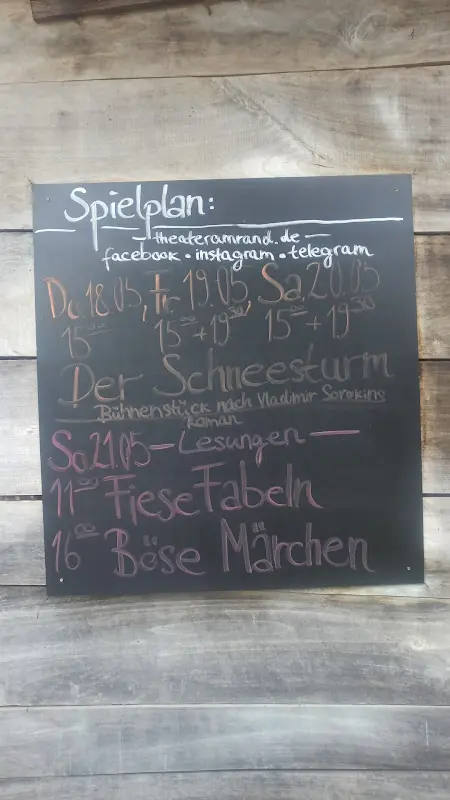 Spielplan:
— theateramrand.de —
facebook • instagram • telegram
Do.18.05, Fr. 19.05, Sa.20.05
15⁰⁰ 15⁰⁰+19³⁰ 15⁰⁰+19³⁰
Der Schneesturm
Bühnenstück nach Vladimir Sorokins
Roman
So 21.05 — Lesungen —
11⁰⁰ Fiese Fabeln
16⁰⁰ Böse Märchen